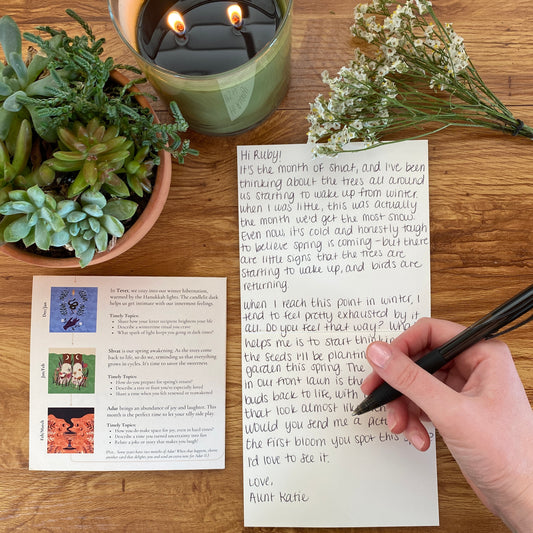 Hi Ruby!
It's the month of Shvat, and I've been
thinking about the trees all around
us starting to wake up from winter.
When I was little, this was actually
the month we'd get the most snow.
Even now, it's cold and honestly tough
to believe spring is coming - but there
are little signs that the trees are
starting to wake up, and birds are
returning.
When I reach this point in winter, I
tend to feel pretty exhausted by it
all. Do you feel that way?
helps me is to start thin
the seeds I'll be plantin
garden this spring. The
in our front lawn is the
buds back to life, with
that look almost like
would you send me a pict
the first bloom you spot this
I'd love to see it.
Love,
Aunt Katie
Dec/Jan
In Tevet, we cozy into our winter hibernation,
warmed by the Hanukkah lights. The candlelit dark
helps us get intimate with our innermost feelings.
Timely Topics:
• Share how your letter recipient brightens your life
• Describe a wintertime ritual you crave
• What spark of light keeps you going in dark times?
Jan/Feb
Shvat is our spring awakening. As the trees come
back to life, so do we, reminding us that everything
grows in cycles. It's time to savor the sweetness.
Timely Topics:
• How do you prepare for spring's return?
• Describe a tree or fruit you've especially loved
• Share a time when you felt renewed or reawakened
Feb/March
Adar brings an abundance of joy and laughter. This
month is the perfect time to let your silly side play.
Timely Topics:
• How do you make space for joy, even in hard times?
• Describe a time you turned uncertainty into fun
• Relate a joke or story that makes you laugh!